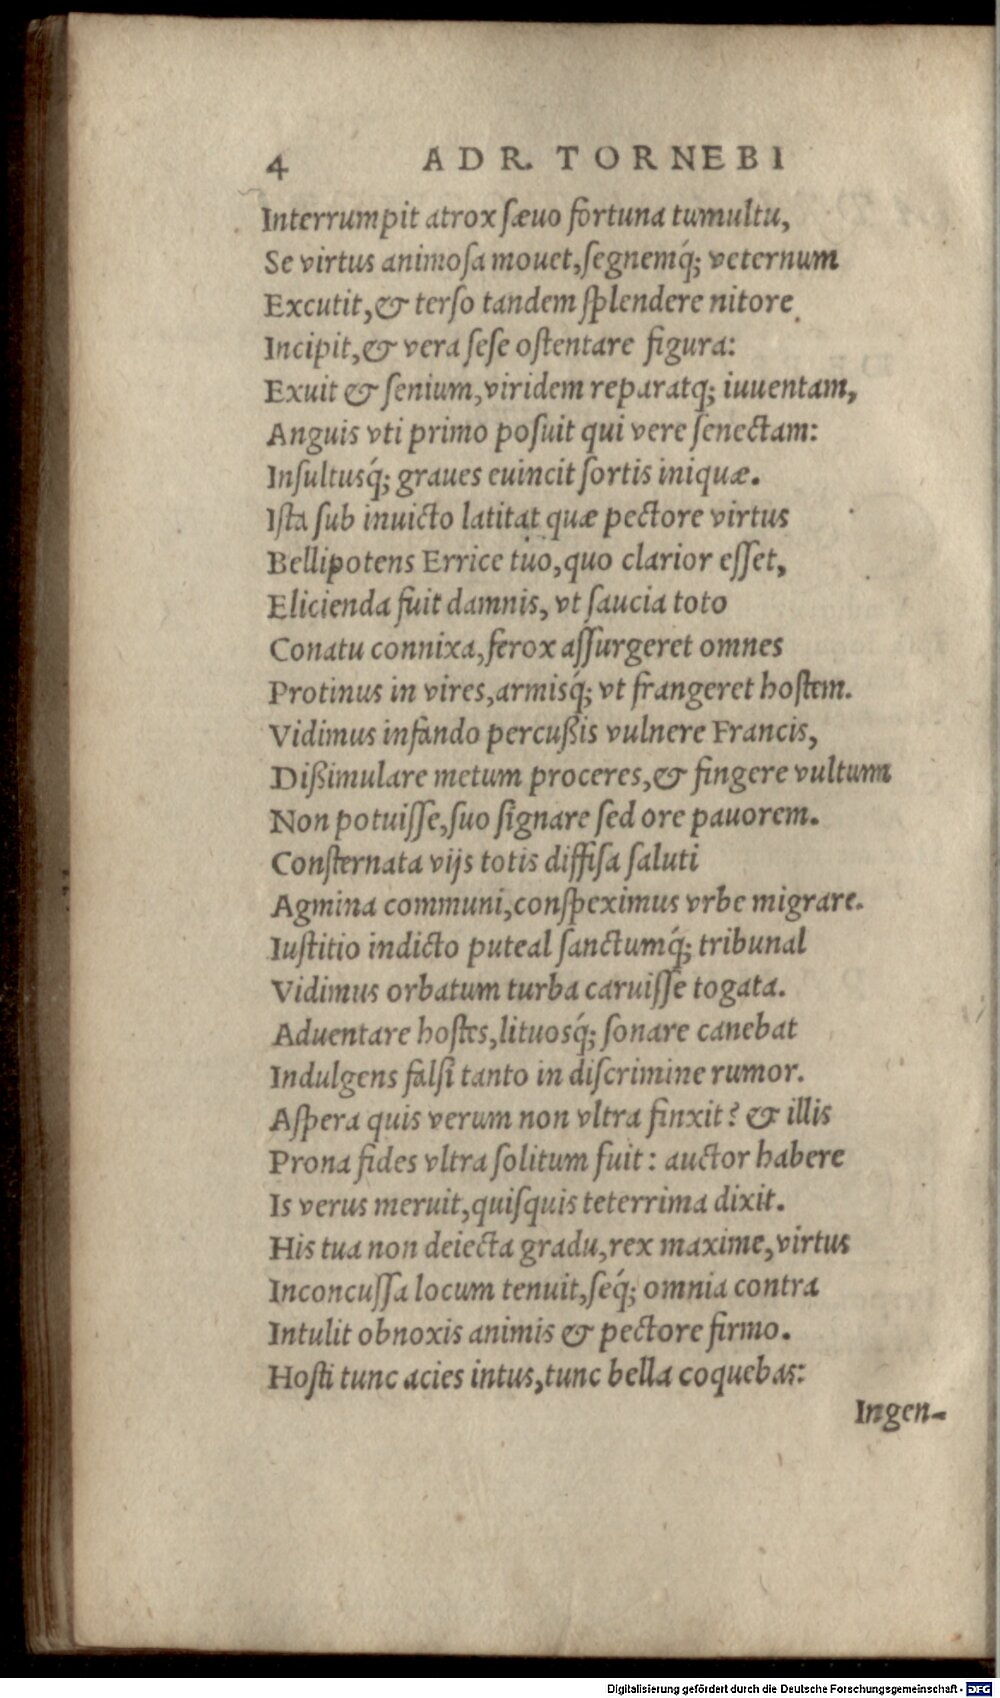 4 ADR. TORNEBI
Interrumpit atrox ſæuo fortuna tumultu,
Se virtus animoſa mouet,ſegnemq́; veternum
Excutit,& terſo tandem ſplendere nitore
Incipit,& vera ſeſe oſtentare figura:
Exuit & ſenium,viridem reparatq; iuuentam,
Anguis vti primo poſuit qui vere ſenectam:
Inſultusq́; graues euincit ſortis iniquæ.
Iſta ſub inuicto latitat quæ pectore virtus
Bellipotens Errice tuo,quo clarior eſſet,
Elicienda fuit damnis, vt ſaucia toto
Conatu connixa,ferox aſſurgeret omnes
Protinus in vires,armisq́; vt frangeret hoſtem.
Vidimus infando percußis vulnere Francis,
Dißimulare metum proceres,& fingere vultum
Non potuiſſe,ſuo ſignare ſed ore pauorem.
Conſternata vijs totis diffiſa ſaluti
Agmina communi,conſpeximus vrbe migrare.
Iuſtitio indicto puteal ſanctumq́; tribunal
Vidimus orbatum turba caruiſſe togata.
Aduentare hoſtes,lituosq́; ſonare canebat
Indulgens falſi tanto in diſcrimine rumor.
Aſpera quis verum non vltra finxit? & illis
Prona fides vltra ſolitum fuit: auctor habere
Is verus meruit,quiſquis teterrima dixit.
His tua non deiecta gradu,rex maxime,virtus
Inconcuſſa locum tenuit,ſeq́; omnia contra
Intulit obnoxis animis & pectore firmo.
Hoſti tunc acies intus,tunc bella coquebas:
Ingen-
Digitalisierung gefördert durch die Deutsche Forschungsgemeinschaft - DFG